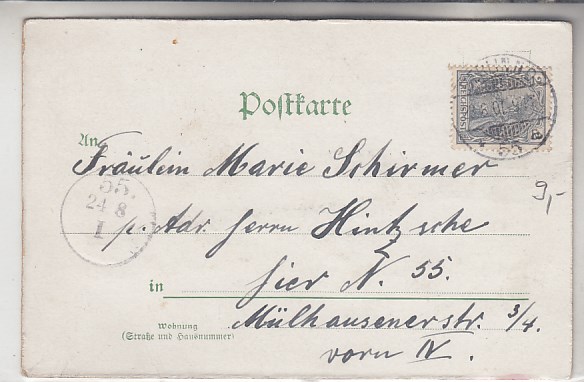 Postkarte
An
Fräulein Marie Schirmer
p. Adr. Herrn Hintzsche
in hier N. 55.
Wohnung
(Straße und Hausnummer)
Mülhausenerstr. 3/4.
vorn IV.
55.
24 8
1
9,-